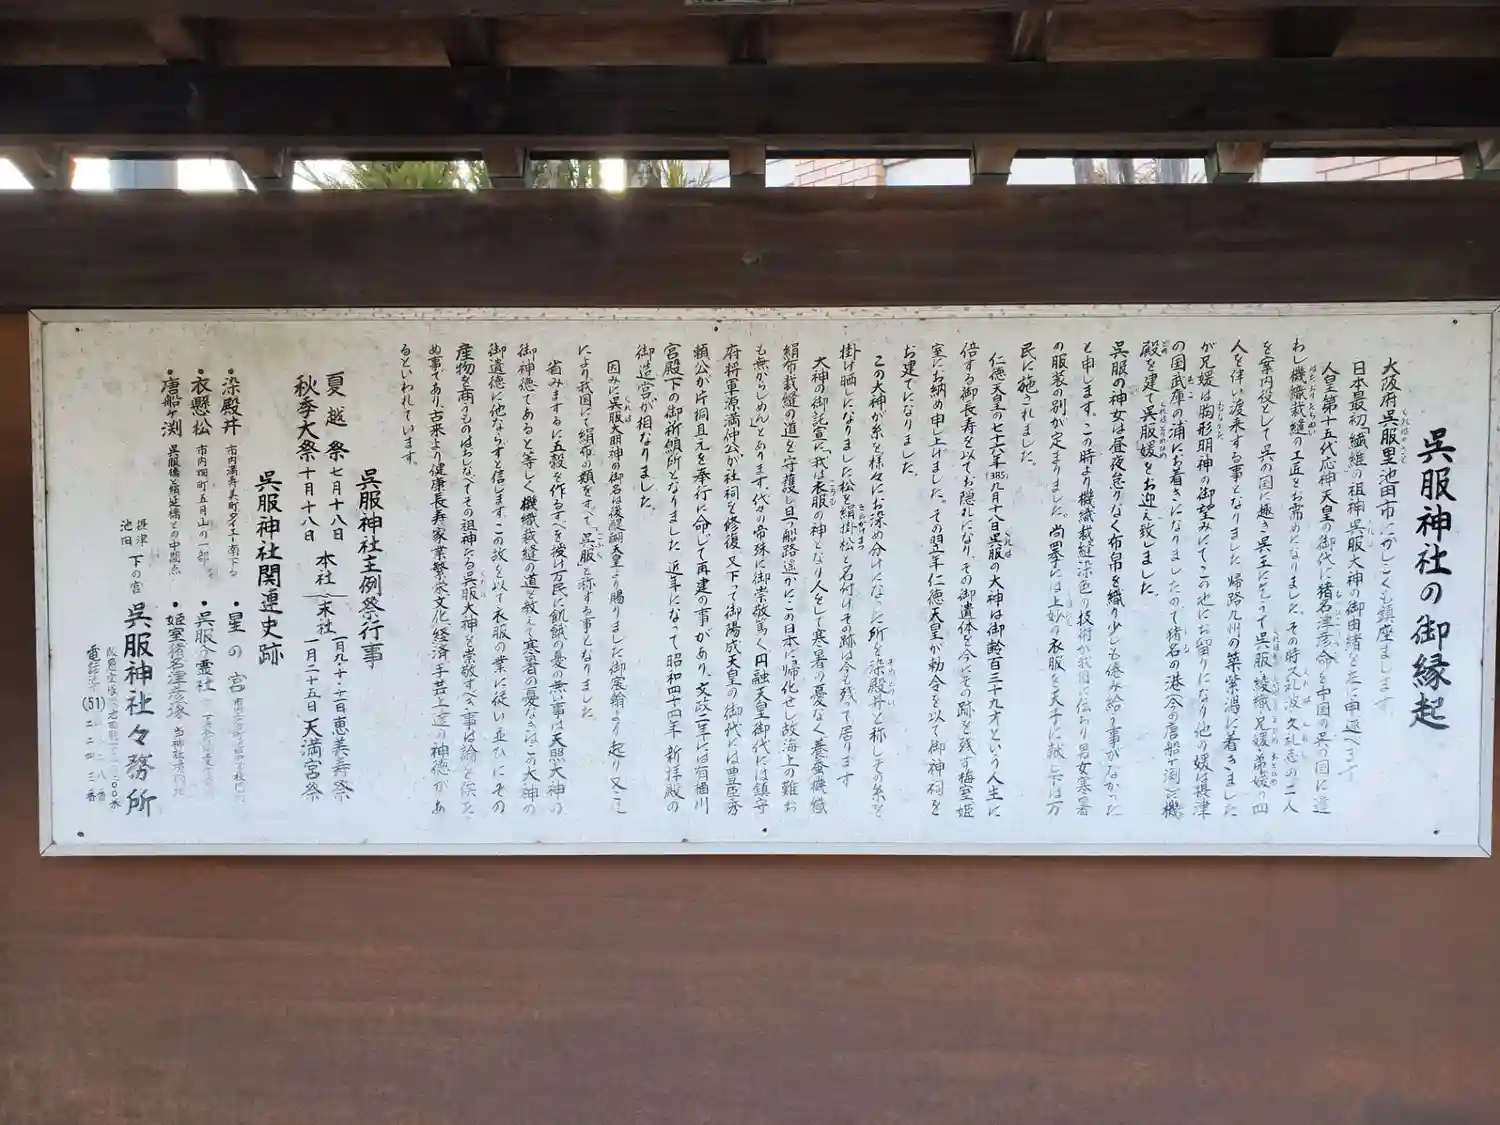 呉服神社の御縁起
大阪府呉服里池田市にかしこくも鎮座まします
日本最初「繊維の祖神」呉服大神の御由緒を左に申述べます
人皇第十五代応神天皇の御代に猪名津彦命を中国の呉の国に遣
わし機織裁縫の工匠をお需めになりました。その時久礼波、久礼志の二人
を案内役として呉の国に趣き呉王にこうて呉服、綾織、兄媛、弟媛の四
人を伴い渡来する事となりました帰路九州の築紫潟に着きました
が兄媛は胸形明神の御望みにてこの地にお留りになり他の媛は摂津
の国武庫の浦にお着きになりましたので猪名の港(今の唐船ヶ渕)に機
殿を建て呉服媛をお迎え致しました。
呉服の神女は昼夜怠りなく布帛を織り少しも倦み給う事がなかった
と申します。この時より機織裁縫染色の技術が我国に伝わり男女寒暑
の服装の別が定まりました。尚四季には上妙の衣服を天子に献じ、一は万
民に施されました。
仁徳天皇の七十六年(385)九月十八日呉服の大神は御齢百三十九才という人生に
倍する御長寿を以てお隠れになり、その御遺体を今にその跡を残す梅室、姫
室にお納め申し上げました。その翌年仁徳天皇が勅令を以て御神祠を
お建てになりました。
この大神が糸を様々にお染め分けになった所を染殿井と称しその糸を
掛け晒しになりました松を絹掛松と名付けその跡は今も残って居ります
大神の御託宣に「我は衣服の神となり人をして寒暑の憂なく養蚕機織
絹布裁縫の道を守護し且つ船路遥かにこの日本に帰化せし故海上の難お
も無からしめん」とあります。代々の帝殊に御崇敬篤く円融天皇御代には鎮守
府将軍源満仲公が社祠を修復、又下って御陽成天皇の御代には豊臣秀
頼公が片桐且元を奉行に命じて再建の事があり、文政二年には有栖川
宮殿下の御祈願所となりました。近年になって昭和四十四年新拝殿の
御造営が相なりました。
因みに呉服大明神の御名は後醍醐天皇より賜りました御宸翰より起り又これ
により我国にて絹布の類をすべて、「呉服」と称する事となりました
省みまするに五穀を作るすべを授け万民に飢餓の憂の無い事は天照大神の
御神徳であると等しく機織裁縫の道を教えて寒暑の憂なきはこの大神の
御遺徳に他ならずと信じます。この故を以て衣服の業に従い並びにその
産物を商うものはおしなべてその祖神たる呉服大神を崇敬すべき事は論を俟た
ぬ事であり、古来より健康長寿家業繁栄文化、経済手芸上達の神徳があ
るといわれています。
呉服神社主例祭行事
夏越祭 七月十八日 本社 末社 一月九・十・十一日恵美寿祭
秋季大祭 十月十八日 一月二十五日天満宮祭
呉服神社関連史跡
・染殿井 市内満寿美町ダイエー南下る ・星の宮
・衣懸松 市内畑町五月山の一部 ・呉服の霊社
・唐船ヶ渕 呉服橋と絹延橋との中間点 ・姫室猪名津彦塚
摂津池田 下の宮 呉服神社々務所
電話 (51) 二二四三番